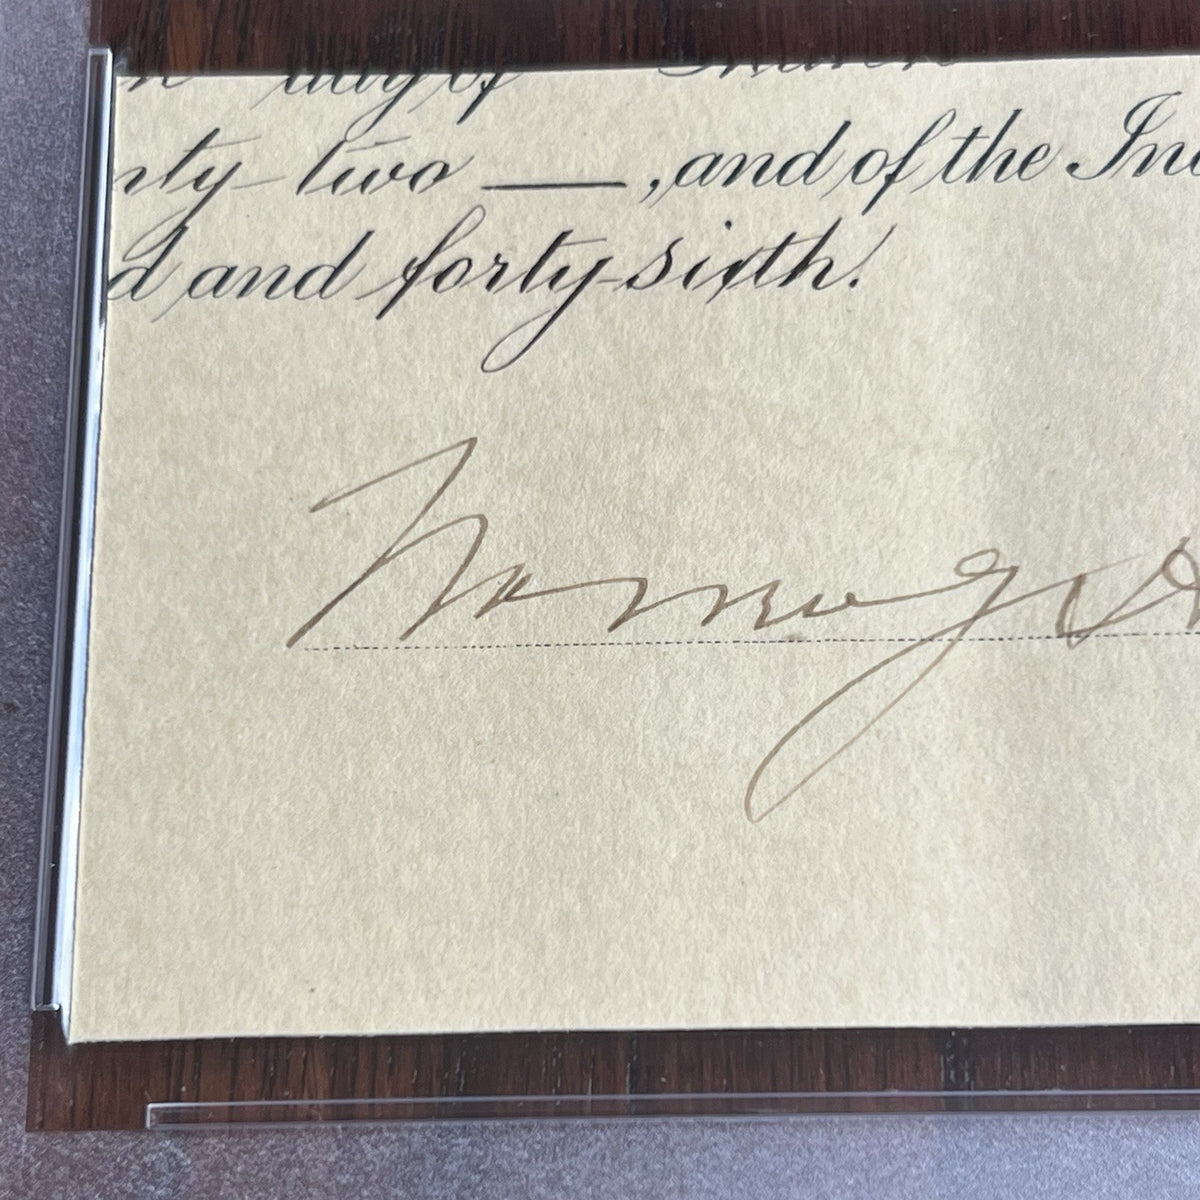 day of March
nty-two —, and of the Ind
d and forty-sixth.
Warren G. H